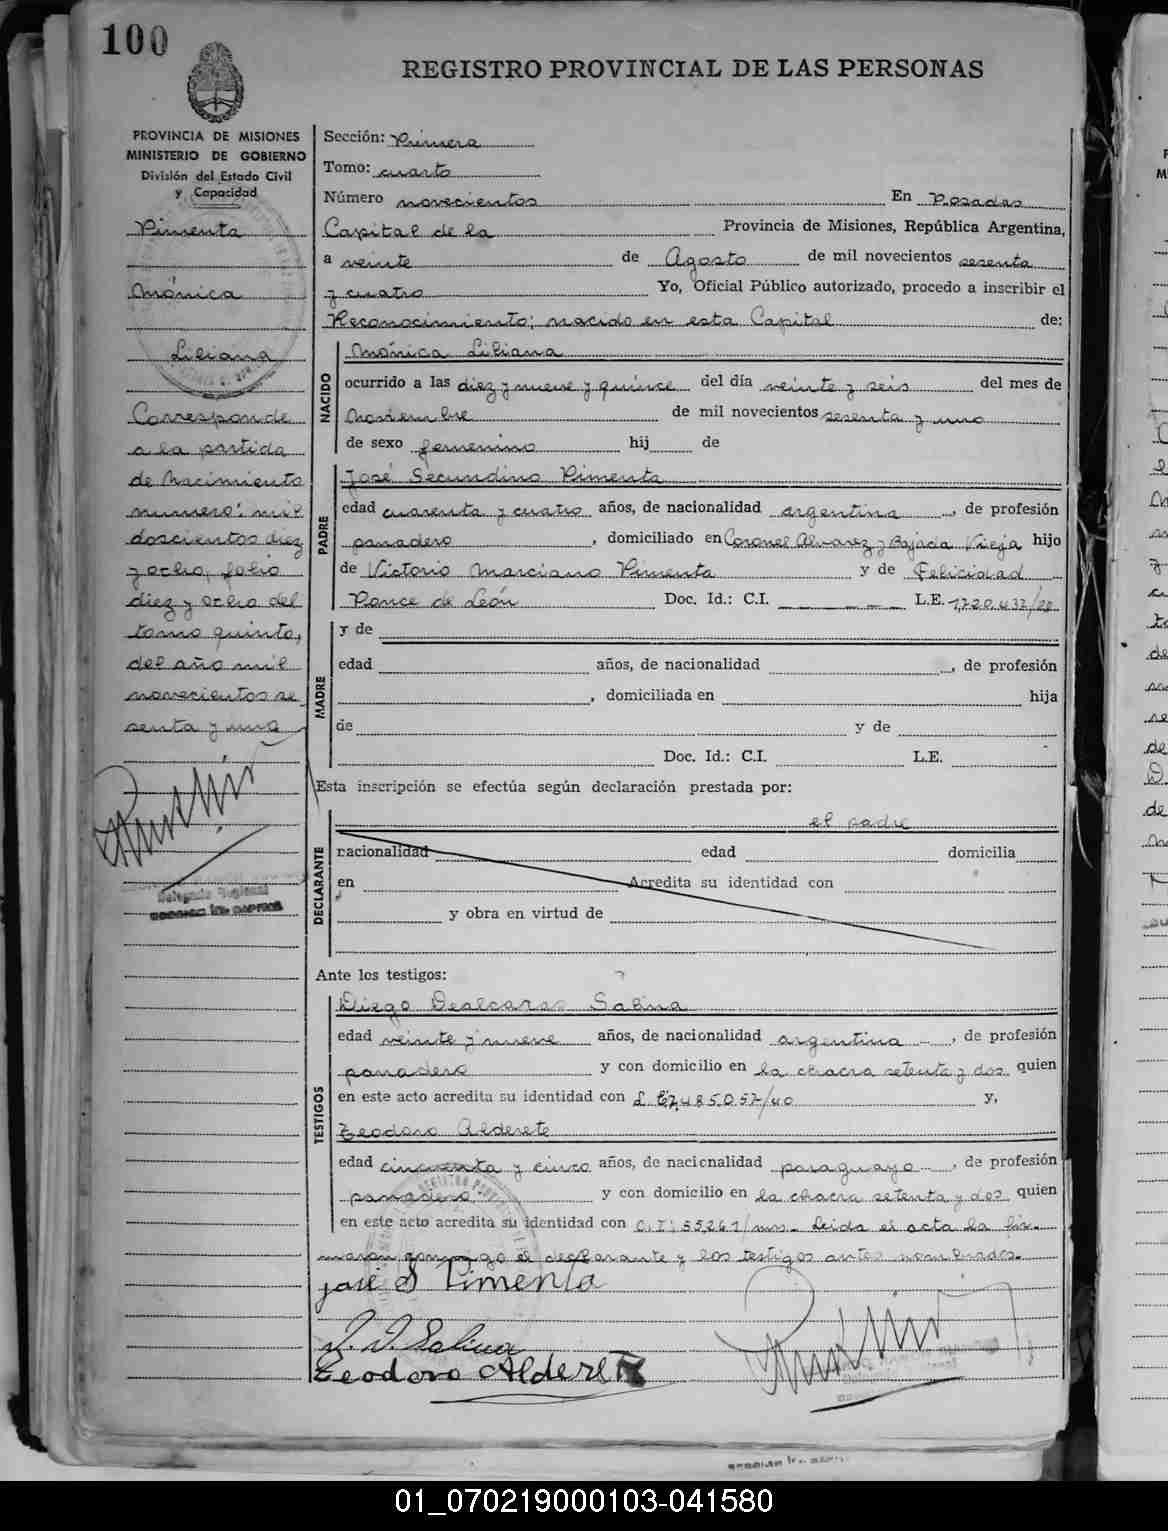 100
REGISTRO PROVINCIAL DE LAS PERSONAS
PROVINCIA DE MISIONES
MINISTERIO DE GOBIERNO
División del Estado Civil
y Capacidad
Pimenta
Mónica
Liliana
Corresponde
a la partida
de Nacimiento
numero: mil
doscientos diez
y ocho, folio
diez y ocho del
tomo quinto,
del año mil
novecientos se
senta y uno
Delegado Regional
Sección: Primera
Tomo: cuarto
Número novecientos En Posadas
Capital de la Provincia de Misiones, República Argentina,
a veinte de Agosto de mil novecientos sesenta
y cuatro Yo, Oficial Público autorizado, procedo a inscribir el
Reconocimiento; nacido en esta Capital de:
NACIDO
Mónica Liliana
ocurrido a las diez y nueve y quince del día veinte y seis del mes de
Noviembre de mil novecientos sesenta y uno
de sexo femenino hij de
PADRE
José Secundino Pimenta
edad cuarenta y cuatro años, de nacionalidad argentina, de profesión
panadero, domiciliado en Coronel Alvarez y Bajada Vieja hijo
de Victorio Marciano Pimenta y de Felicidad
Ponce de León Doc. Id.: C.I. L.E.
MADRE
y de
edad años, de nacionalidad , de profesión
, domiciliada en hija
de y de
Doc. Id.: C.I. L.E.
Esta inscripción se efectúa según declaración prestada por:
el padre
DECLARANTE
nacionalidad edad domicilia
en Acredita su identidad con
y obra en virtud de
Ante los testigos:
TESTIGOS
Diego Dealcaras Salina
edad veinte y nueve años, de nacionalidad argentina, de profesión
panadero y con domicilio en la chacra setenta y dos quien
en este acto acredita su identidad con y,
Teodoro Alderete
edad cincuenta y cinco años, de nacionalidad paraguayo, de profesión
panadero y con domicilio en la chacra setenta y dos quien
en este acto acredita su identidad con C.I: 55,261/mns. Leida el acta la fir-
maron conmigo el declarante y los testigos antes nombrados.
José S Pimenta
D. D. Salina
Teodoro Alderete
01_070219000103-041580